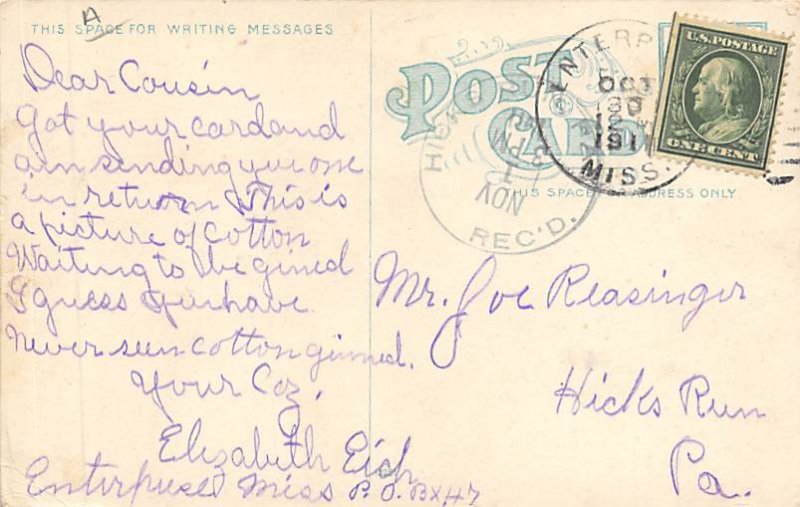 A
THIS SPACE FOR WRITING MESSAGES
Dear Cousin
Got your card and
am sending you one
in return This is
a picture of cotton
Waiting to be gined
I guess you have
never seen cotton ginned.
Your Coz,
Elizabeth Eich
Enterprise Miss P.O. Bx 47
POST CARD
THIS SPACE FOR ADDRESS ONLY
ENTERP
OCT
30
1911
MISS.
HICK
3 PM
NOV
1
REC'D.
U.S. POSTAGE
ONE CENT
Mr. Joe Reasinger
Hicks Run
Pa.